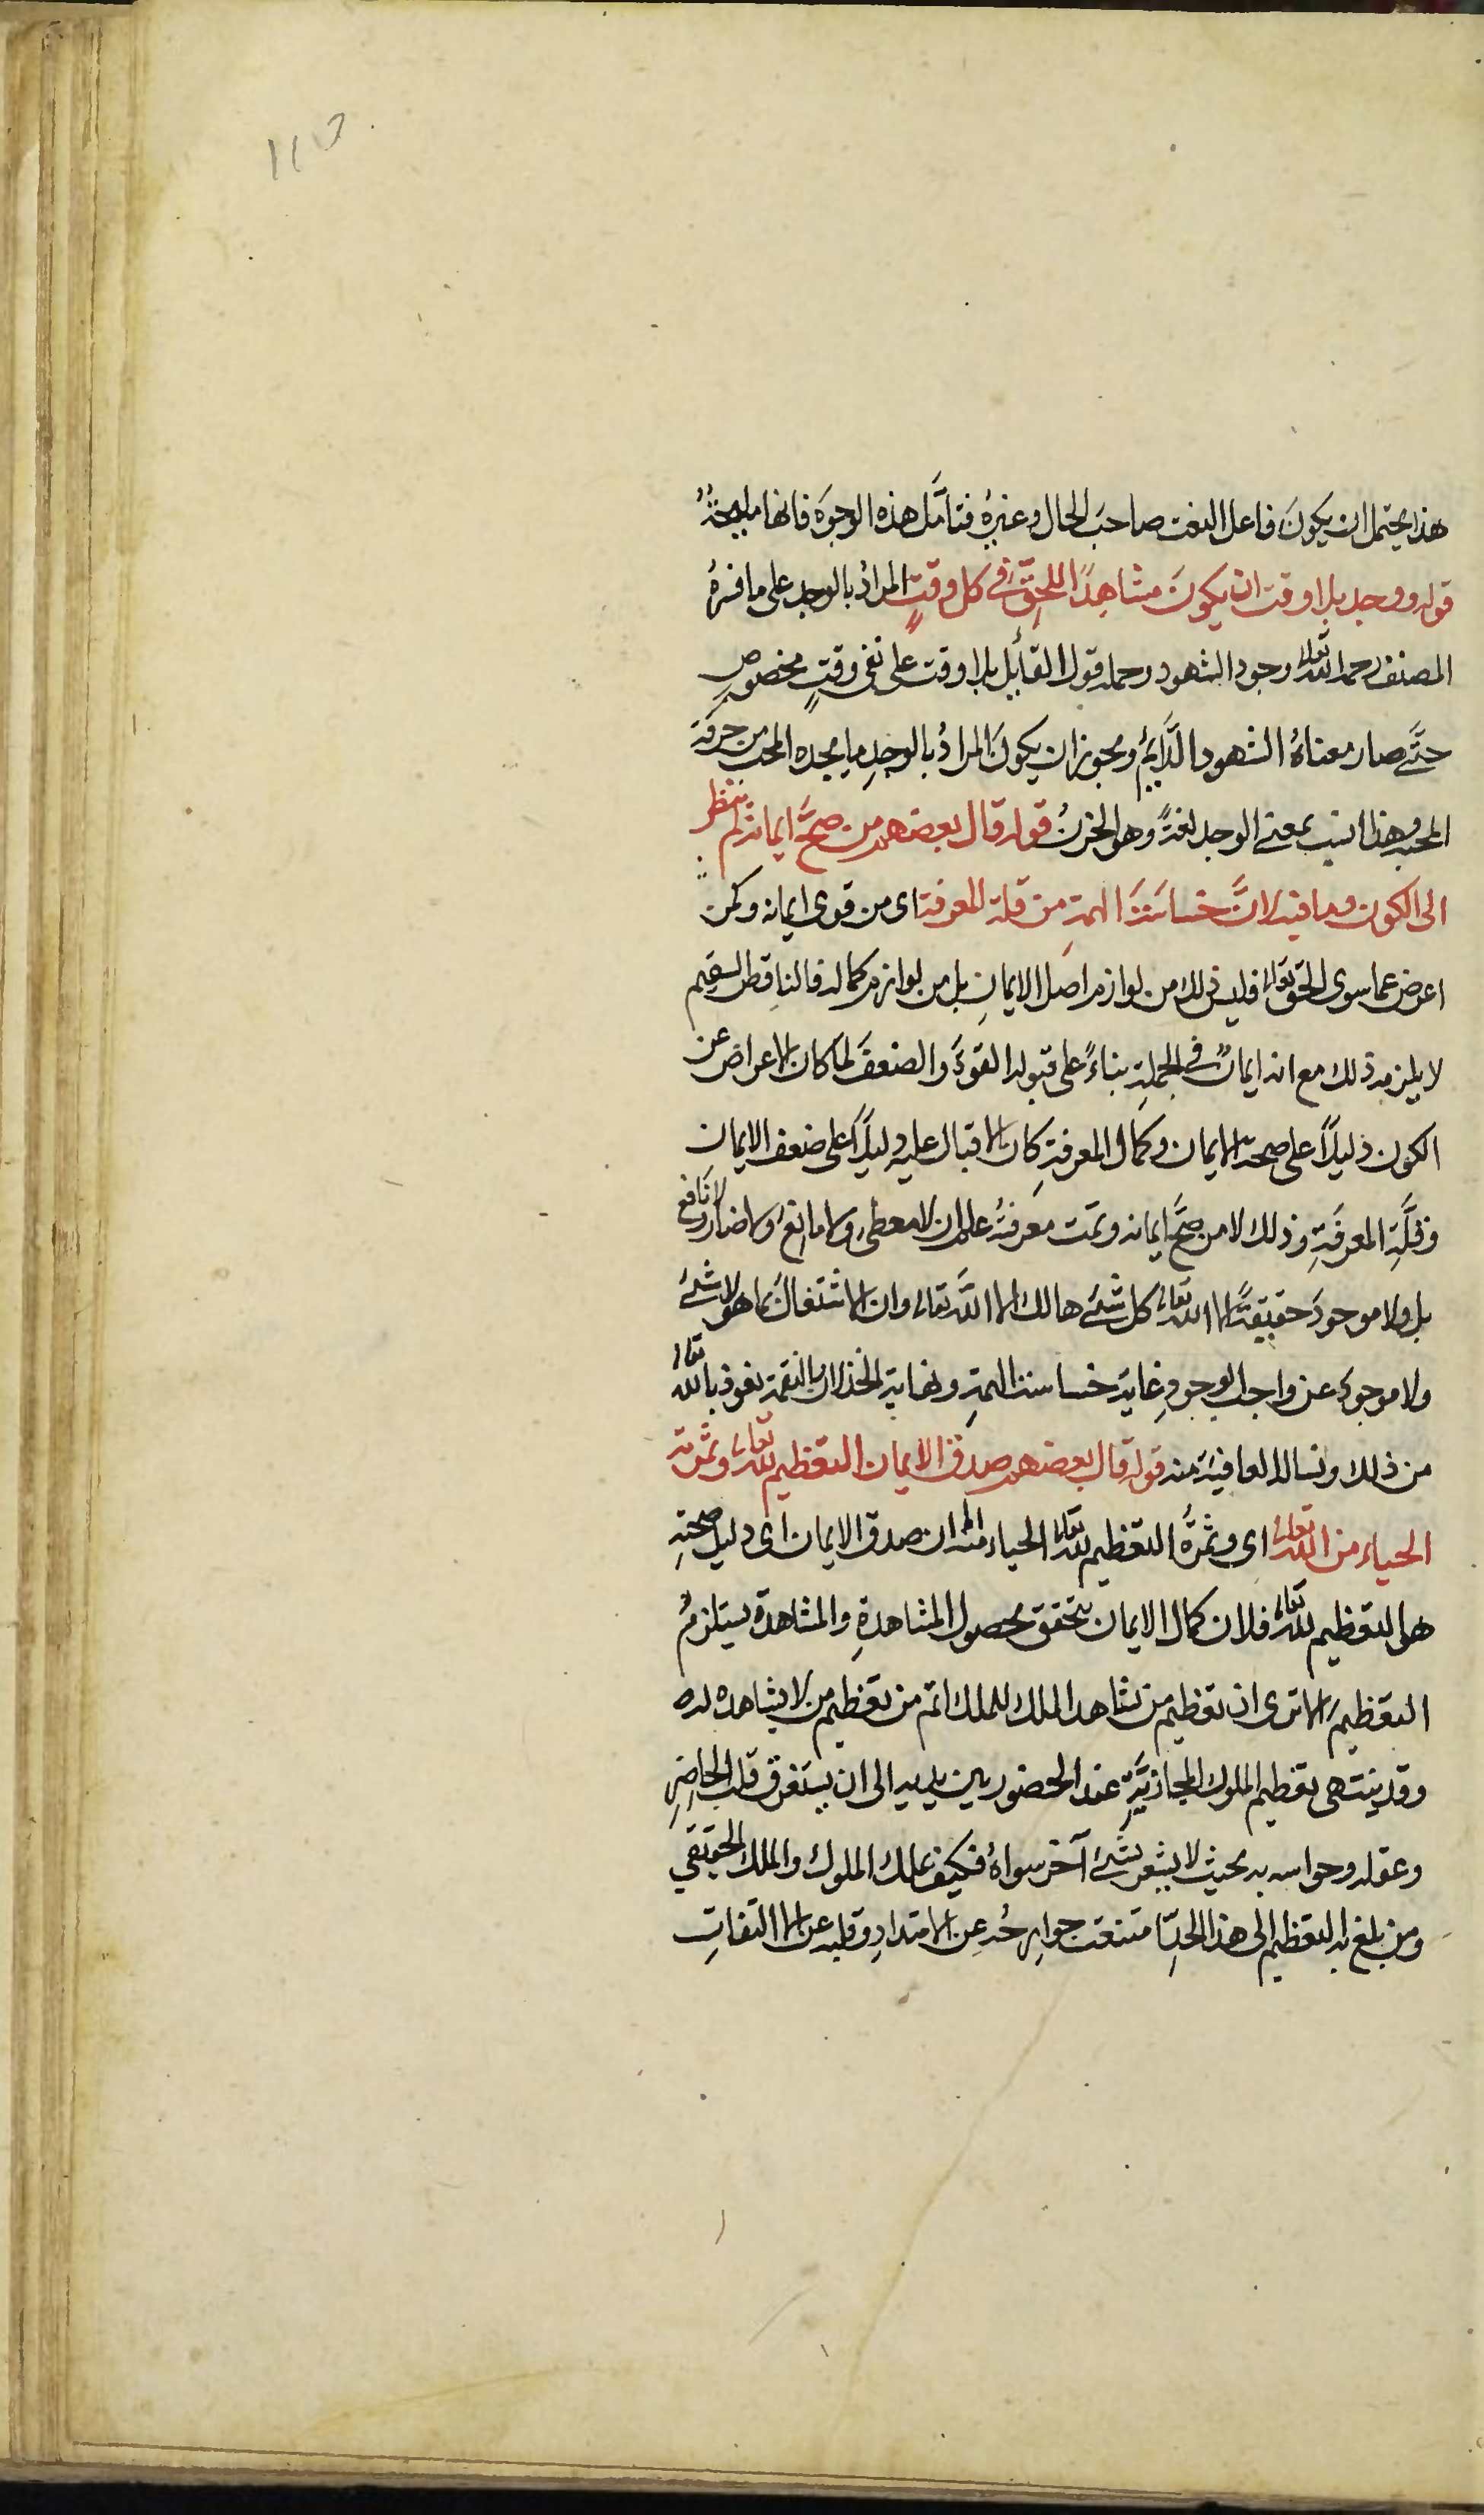 هذا يحتمل ان يكونَ فاعل النعت صاحبَ الحال وغيرهُ فتأمَّل هذه الوجوَه فانها مليحةٌ
قوله ووجد بلا وقت ان يكونَ مشاهدًا للحقِّ فى كل وقتٍ المرادُ بالوجد على ما فسرهُ
المصنف رحمه الله تعالى وجود الشهود وحمله قول القائِل بلا وقت على نفى وقتٍ مخصوصٍ
حتَّى صار معناهُ الشهود الدَّائِمُ ويجوز ان يكونَ المرادُ بالوجدِ ما يجده المحب من حرقة
المحبة وهذا انسب بمعنى الوجد لغةً وهو الحزنُ قوله قال بعضهم من صحَّ ايمانه لم ينظر
الى الكون وما فيه لانَّ خساسَةَ الهمةِ من قلة المعرفة اى من قوى ايمانه وكمل
اعرض عما سوى الحق تعالى فليس ذلك من لوازم اصل الايمانِ بل من لوازم كماله فالناقص السقيم
لا يلزمه ذلك مع انه ايمانٌ فى الجملةِ بناءً على قبوله القوةَ والضعفَ لما كان الاعراض عن
الكون دليلاً على صحة الايمان وكمال المعرفةِ كان الاقبال عليه دليلاً على ضعف الايمان
وقلَّةِ المعرفَةِ وذلك لا من صحَّ ايمانه وتمت معرفتهُ علم ان لا معطى ولا مانعَ ولا ضار ولا نافع
بل ولا موجودَ حقيقةً الا الله تعالى كل شئ هالك الا الله تعالى وان الاشتغالَ بما هو لا شئ
ولا موجود عن واجب الوجودِ غاية خساسة الهمةِ ونهاية الخذلان بالنقمة نعوذ بالله تعالى
من ذلك ونساله العافية منه قوله قال بعضهم صدق الايمان التعظيم لله تعالى وثمرته
الحياء من الله تعالى اى وثمرَةُ التعظيم لله تعالى الحياء منه ان صدق الايمان اى دليل صحتهِ
هو التعظيم لله تعالى فلان كمال الايمان يتحقق بحصول المشاهدةِ والمشاهدة يستلزمُ
التعظيمَ الا ترى ان تعظيم من شاهد الملك للملك اتم من تعظيم من لا يشاهده له
وقد ينتهى تعظيم الملوك المجازيَّةِ عند الحضور بين يديه الى ان يستغرق قلب الحاضرِ
وعقله وحواسه به بحيث لا يشعر بشئ آخر سواهُ فكيف بملك الملوك والملك الحقيقي
ومن بلغ به التعظيم الى هذا الحدِّ امتنعت جوارحُه عِن الامتدادِ وقلبه عن الالتفاتِ